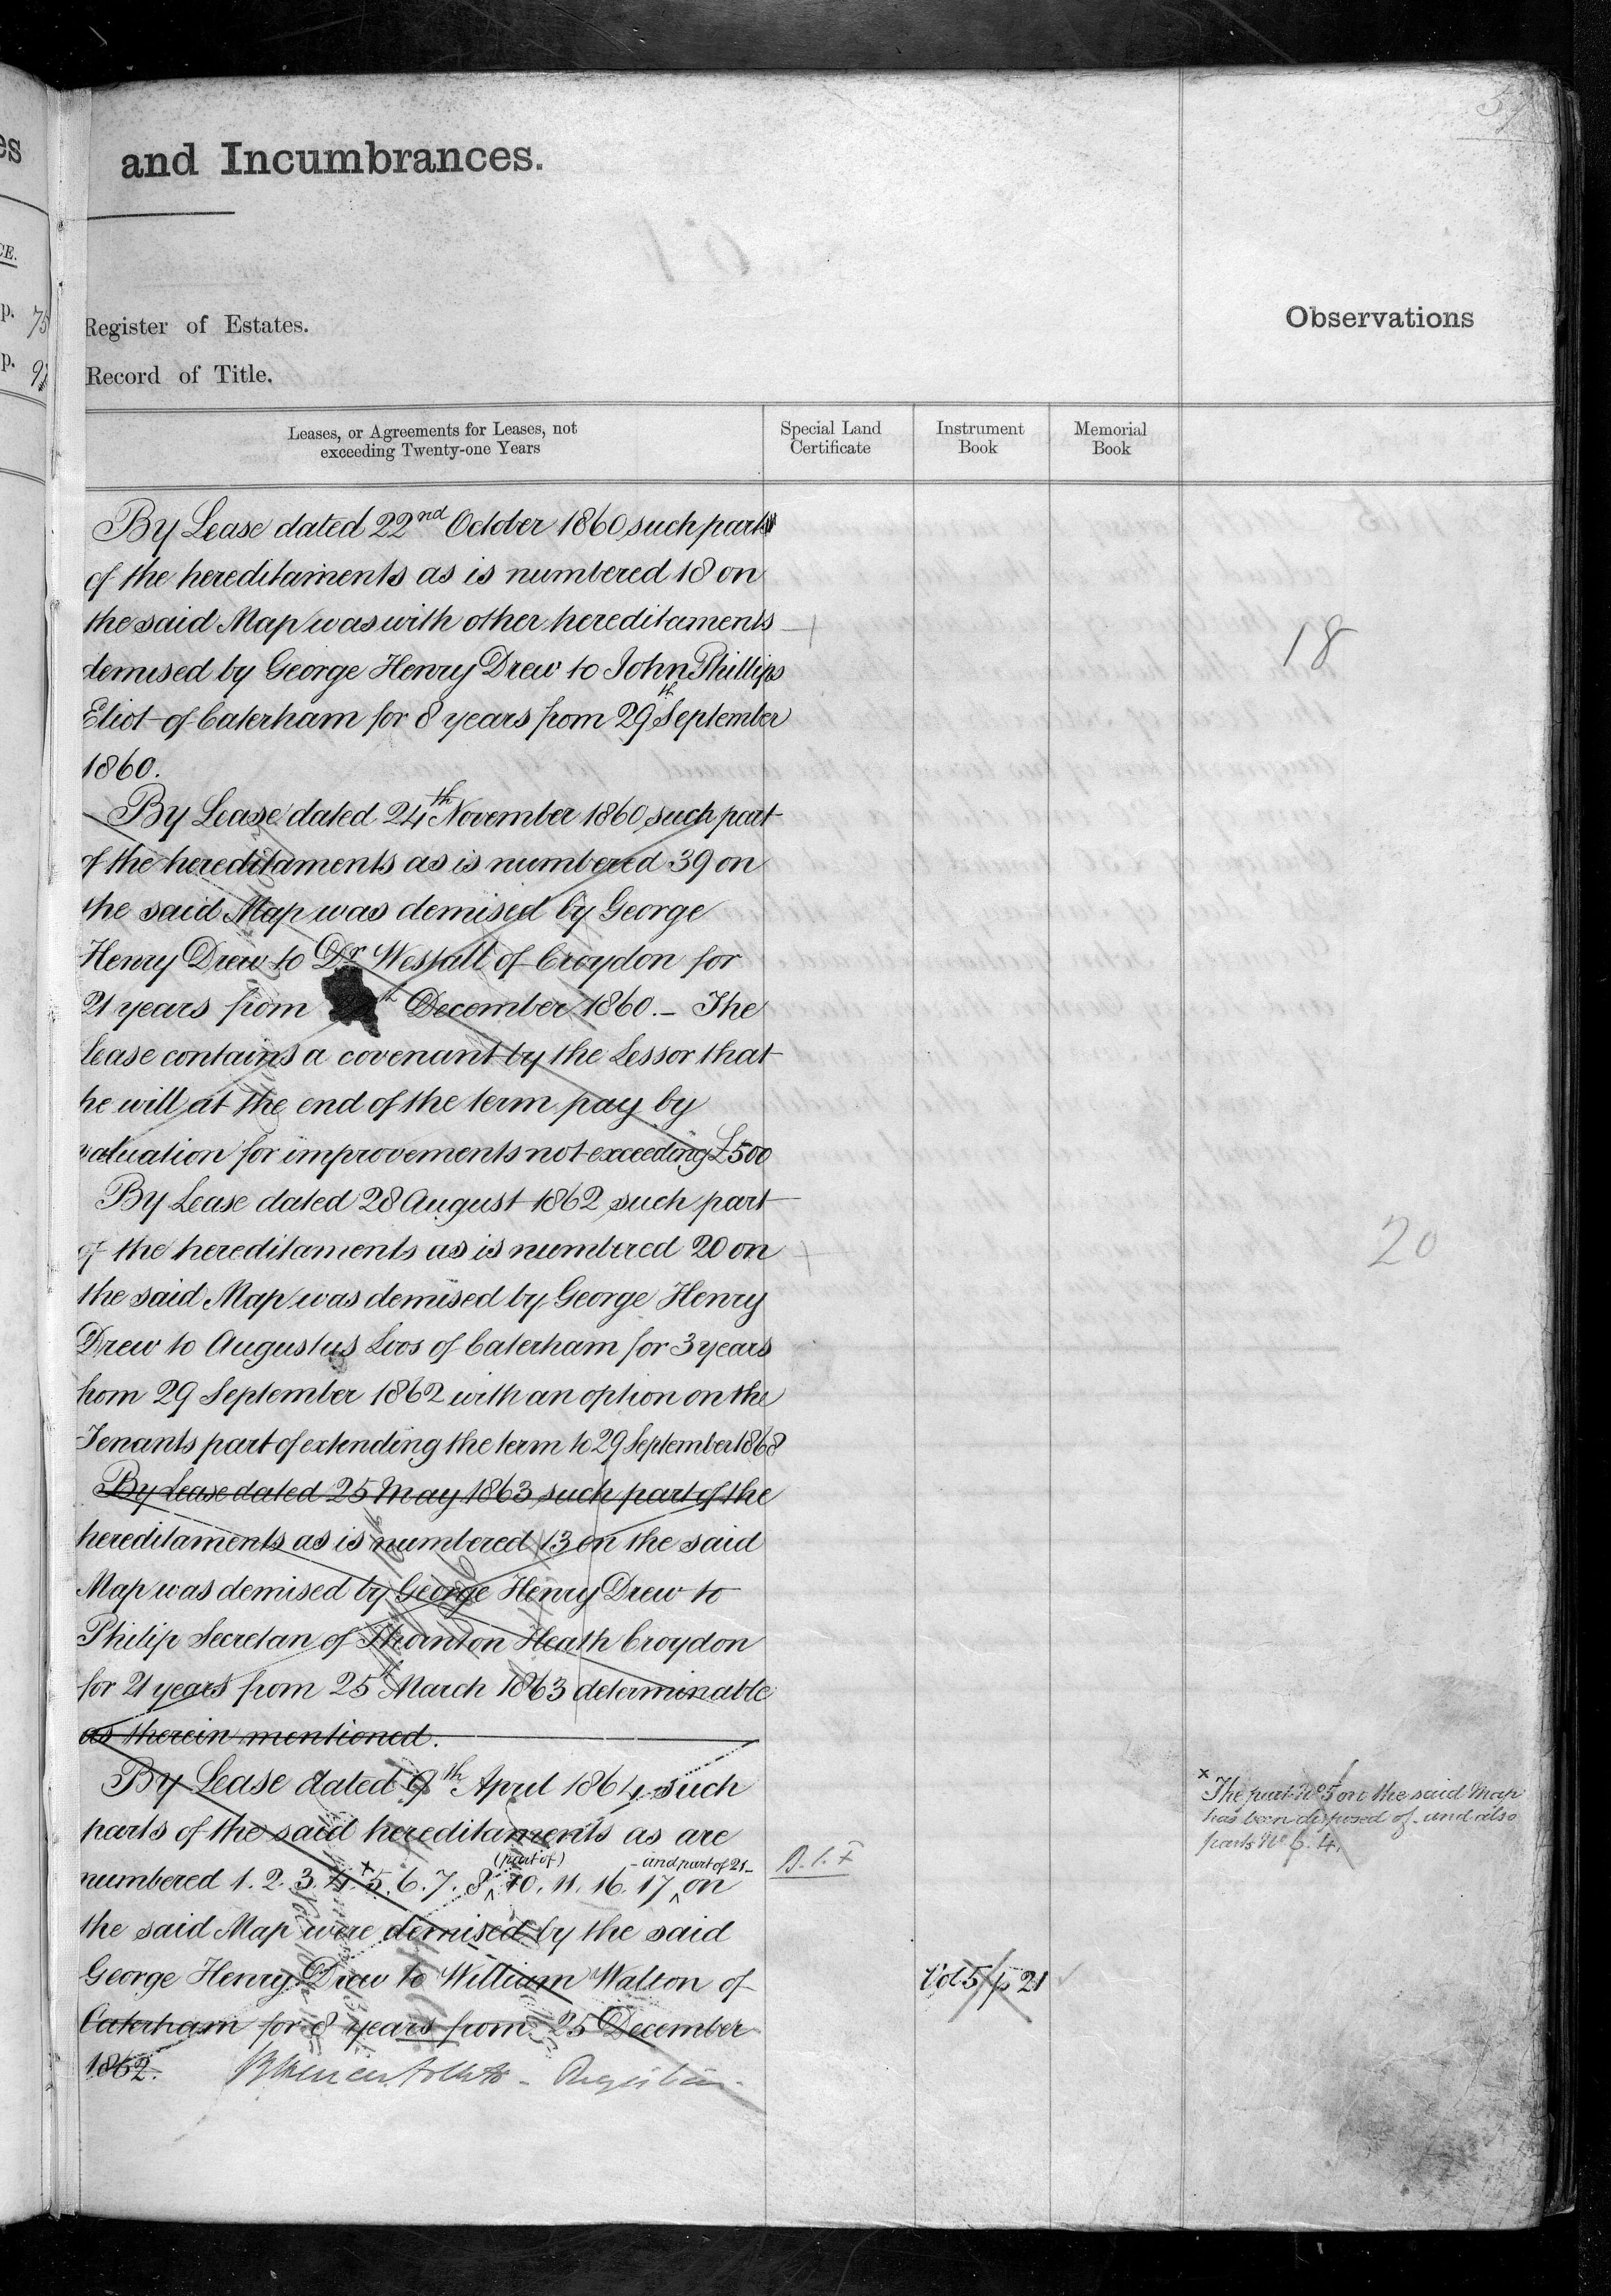 es
CE.
p. 75
p.
and Incumbrances.
Register of Estates.
Record of Title.
Observations
Leases, or Agreements for Leases, not
exceeding Twenty-one Years
Special Land
Certificate
Instrument
Book
Memorial
Book
By Lease dated 22nd October 1860 such part
of the hereditaments as is numbered 18 on
the said Map was with other hereditaments
demised by George Henry Drew to John Phillips
Eliot of Caterham for 8 years from 29th September
1860.
18
By Lease dated 24th November 1860 such part
of the hereditaments as is numbered 39 on
the said Map was demised by George
Henry Drew to Dr Westall of Croydon for
21 years from December 1860. – The
lease contains a covenant by the Lessor that
he will at the end of the term pay by
valuation for improvements not exceeding £500
By Lease dated 28 August 1862 such part
of the hereditaments as is numbered 20 on
the said Map was demised by George Henry
Drew to Augustus Loos of Caterham for 3 years
from 29 September 1862 with an option on the
Tenants part of extending the term to 29 September 1868
20
By Lease dated 25 May 1863 such part of the
hereditaments as is numbered 13 on the said
Map was demised by George Henry Drew to
Philip Secretan of Thornton Heath Croydon
for 21 years from 25th March 1863 determinable
as therein mentioned.
By Lease dated 9th April 1864 such
parts of the said hereditaments as are
(part of) - and part of 21 -
numbered 1. 2. 3. 4. x5. 6. 7. 8. 10. 11. 16. 17 on
the said Map were demised by the said
George Henry Drew to William Walton of
Caterham for 8 years from 25 December
1862.
Registrar
Vol 5 p 21
x The part No 5 on the said Map
has been disposed of and also
parts No 6. 4.